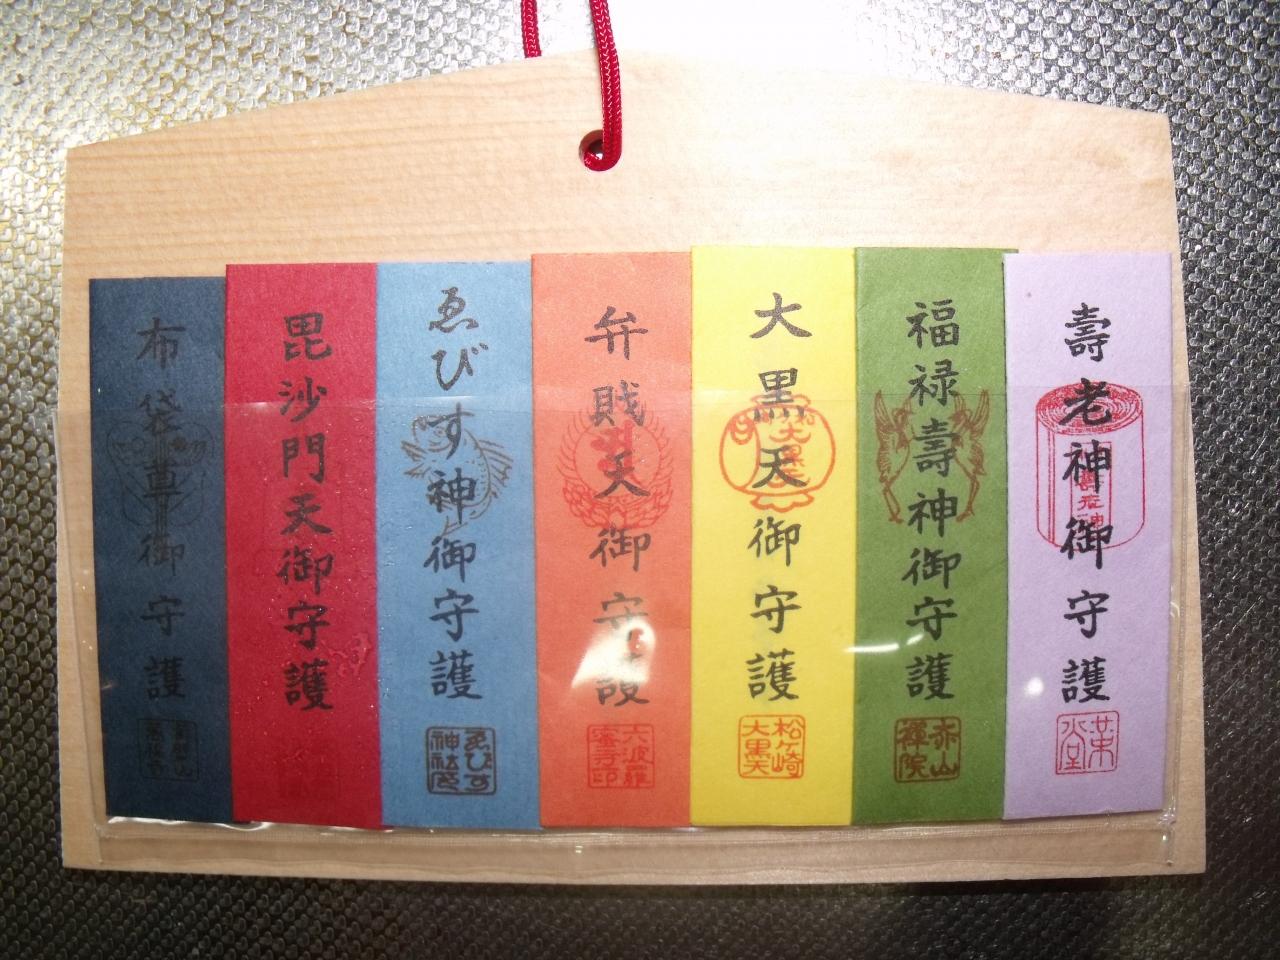 壽老神御守護
壽老神
革堂
福禄壽神御守護
赤山禅院
大黒天御守護
大黒天
松ヶ崎大黒天
弁財天御守護
六波羅蜜寺印
ゑびす神御守護
ゑびす神社
毘沙門天御守護
布袋尊御守護